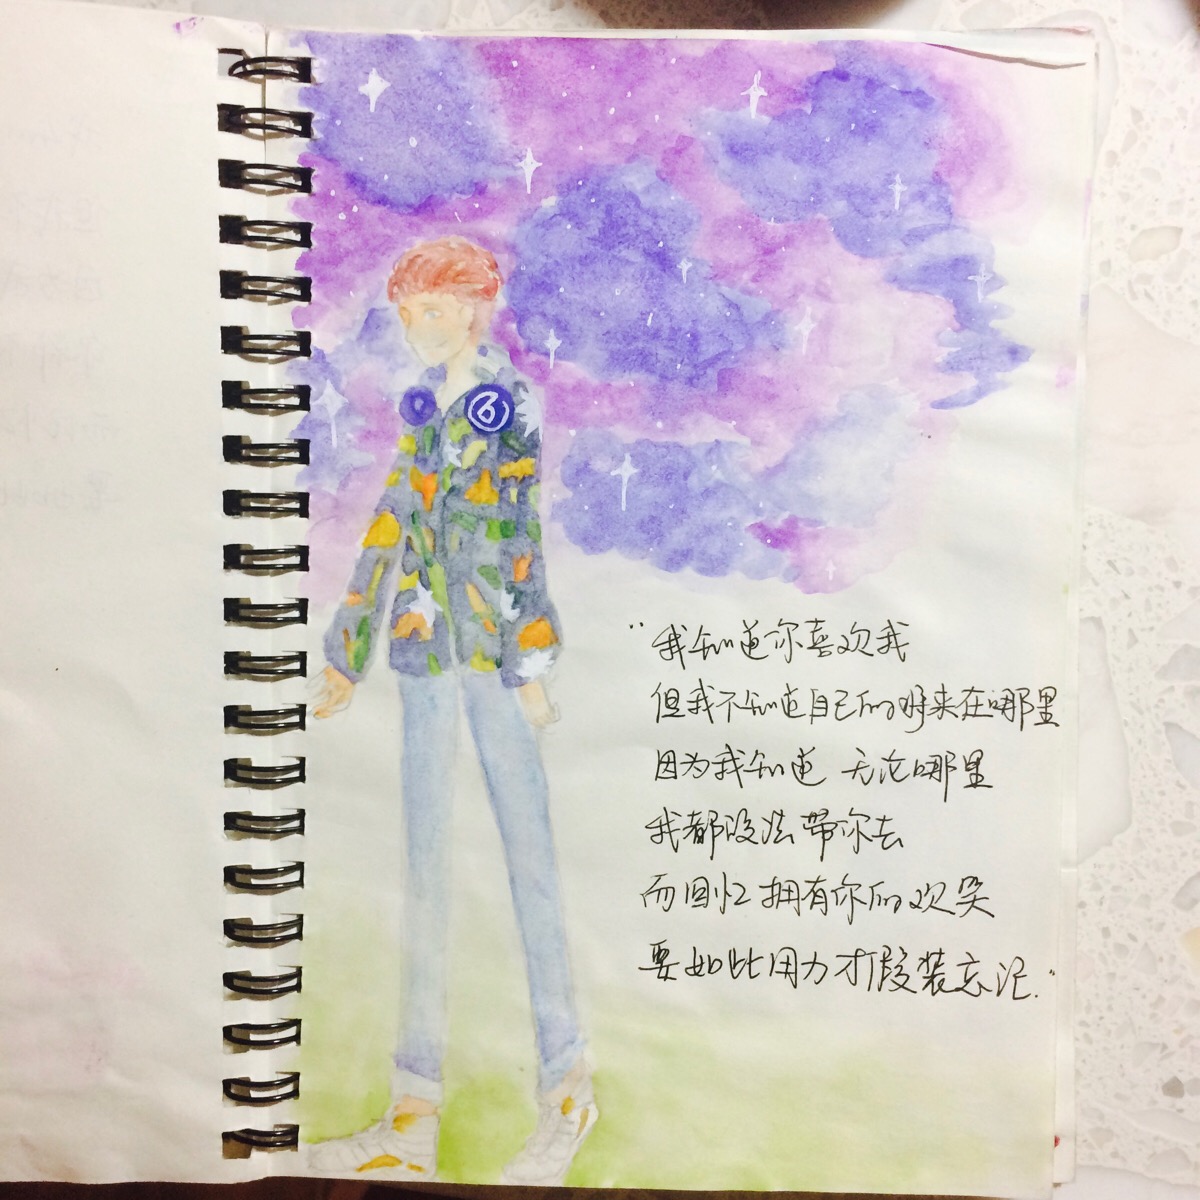 6
"我知道你喜欢我
但我不知道自己的将来在哪里
因为我知道 无论哪里
我都没法带你去
而回忆拥有你的欢笑
要如此用力才假装忘记."